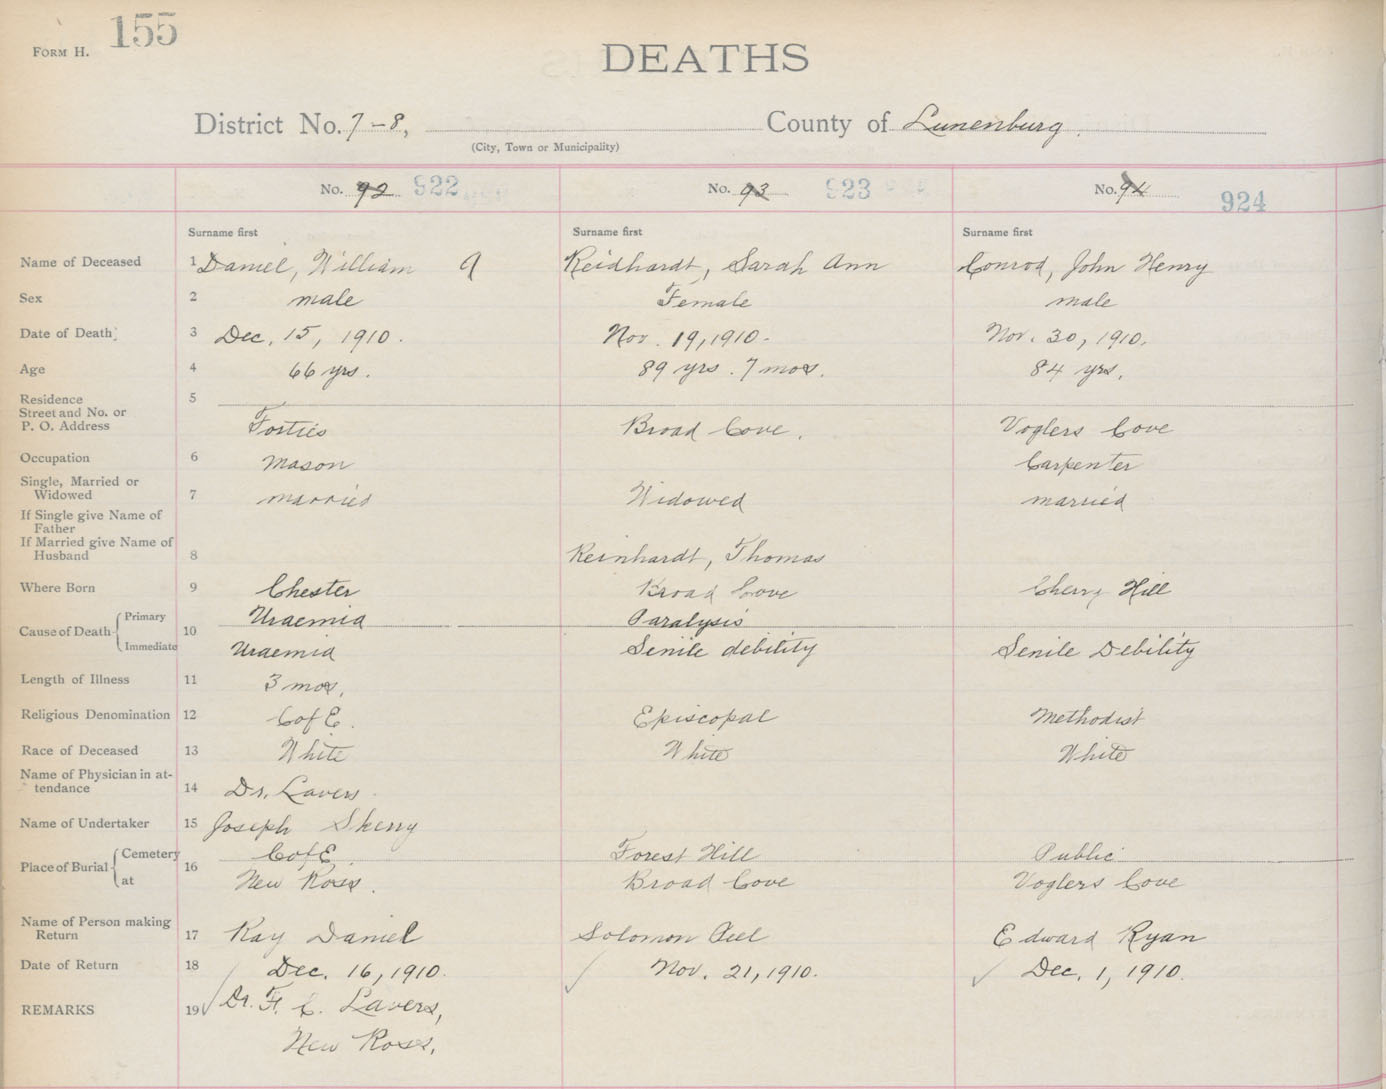 155
FORM H.
DEATHS
District No. 7-8, County of Lunenburg.
(City, Town or Municipality)
No. 92 922 No. 93 923 No. 94 924
Surname first Surname first Surname first
Name of Deceased 1 Daniel, William Reidhardt, Sarah Ann Conrod, John Henry
Sex 2 male Female male
Date of Death 3 Dec. 15, 1910. Nov. 19, 1910. Nov. 30, 1910.
Age 4 66 yrs. 89 yrs. 7 mos. 84 yrs.
Residence 5
Street and No. or
P. O. Address Forties Broad Cove. Voglers Cove
Occupation 6 Mason Carpenter
Single, Married or
Widowed 7 married Widowed married
If Single give Name of
Father
If Married give Name of
Husband 8 Reinhardt, Thomas
Where Born 9 Chester Broad Cove Cherry Hill
Cause of Death 10 Primary Uraemia Paralysis
Immediate Uraemia Senile debility Senile Debility
Length of Illness 11 3 mos.
Religious Denomination 12 C of E. Episcopal Methodist
Race of Deceased 13 White White White
Name of Physician in at-
tendance 14 Dr. Lavers
Name of Undertaker 15 Joseph Skerry
Place of Burial 16 Cemetery C of E. Forest Hill Public
at New Ross. Broad Cove Voglers Cove
Name of Person making
Return 17 Ray Daniel Solomon Edward Ryan
Date of Return 18 Dec. 16, 1910. Nov. 21, 1910. Dec. 1, 1910.
REMARKS 19 Dr. F. C. Lavers,
New Ross.